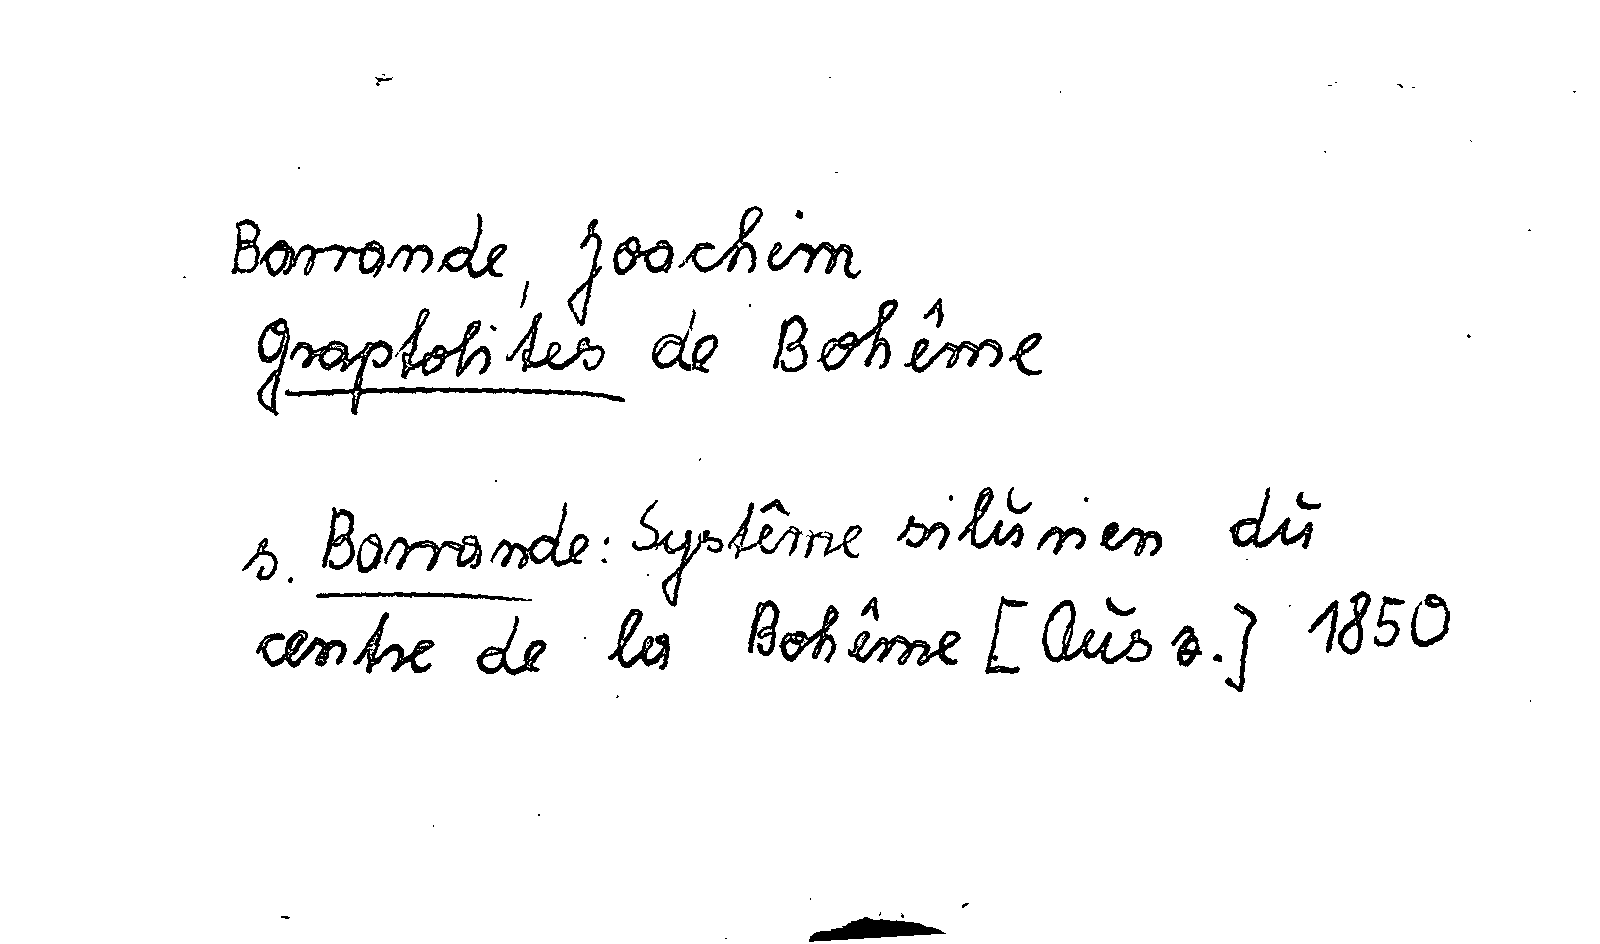 Barrande, Joachim
Graptolites de Bohême
s. Barrande: Systême silurien du
centre de la Bohême [Ausz.] 1850